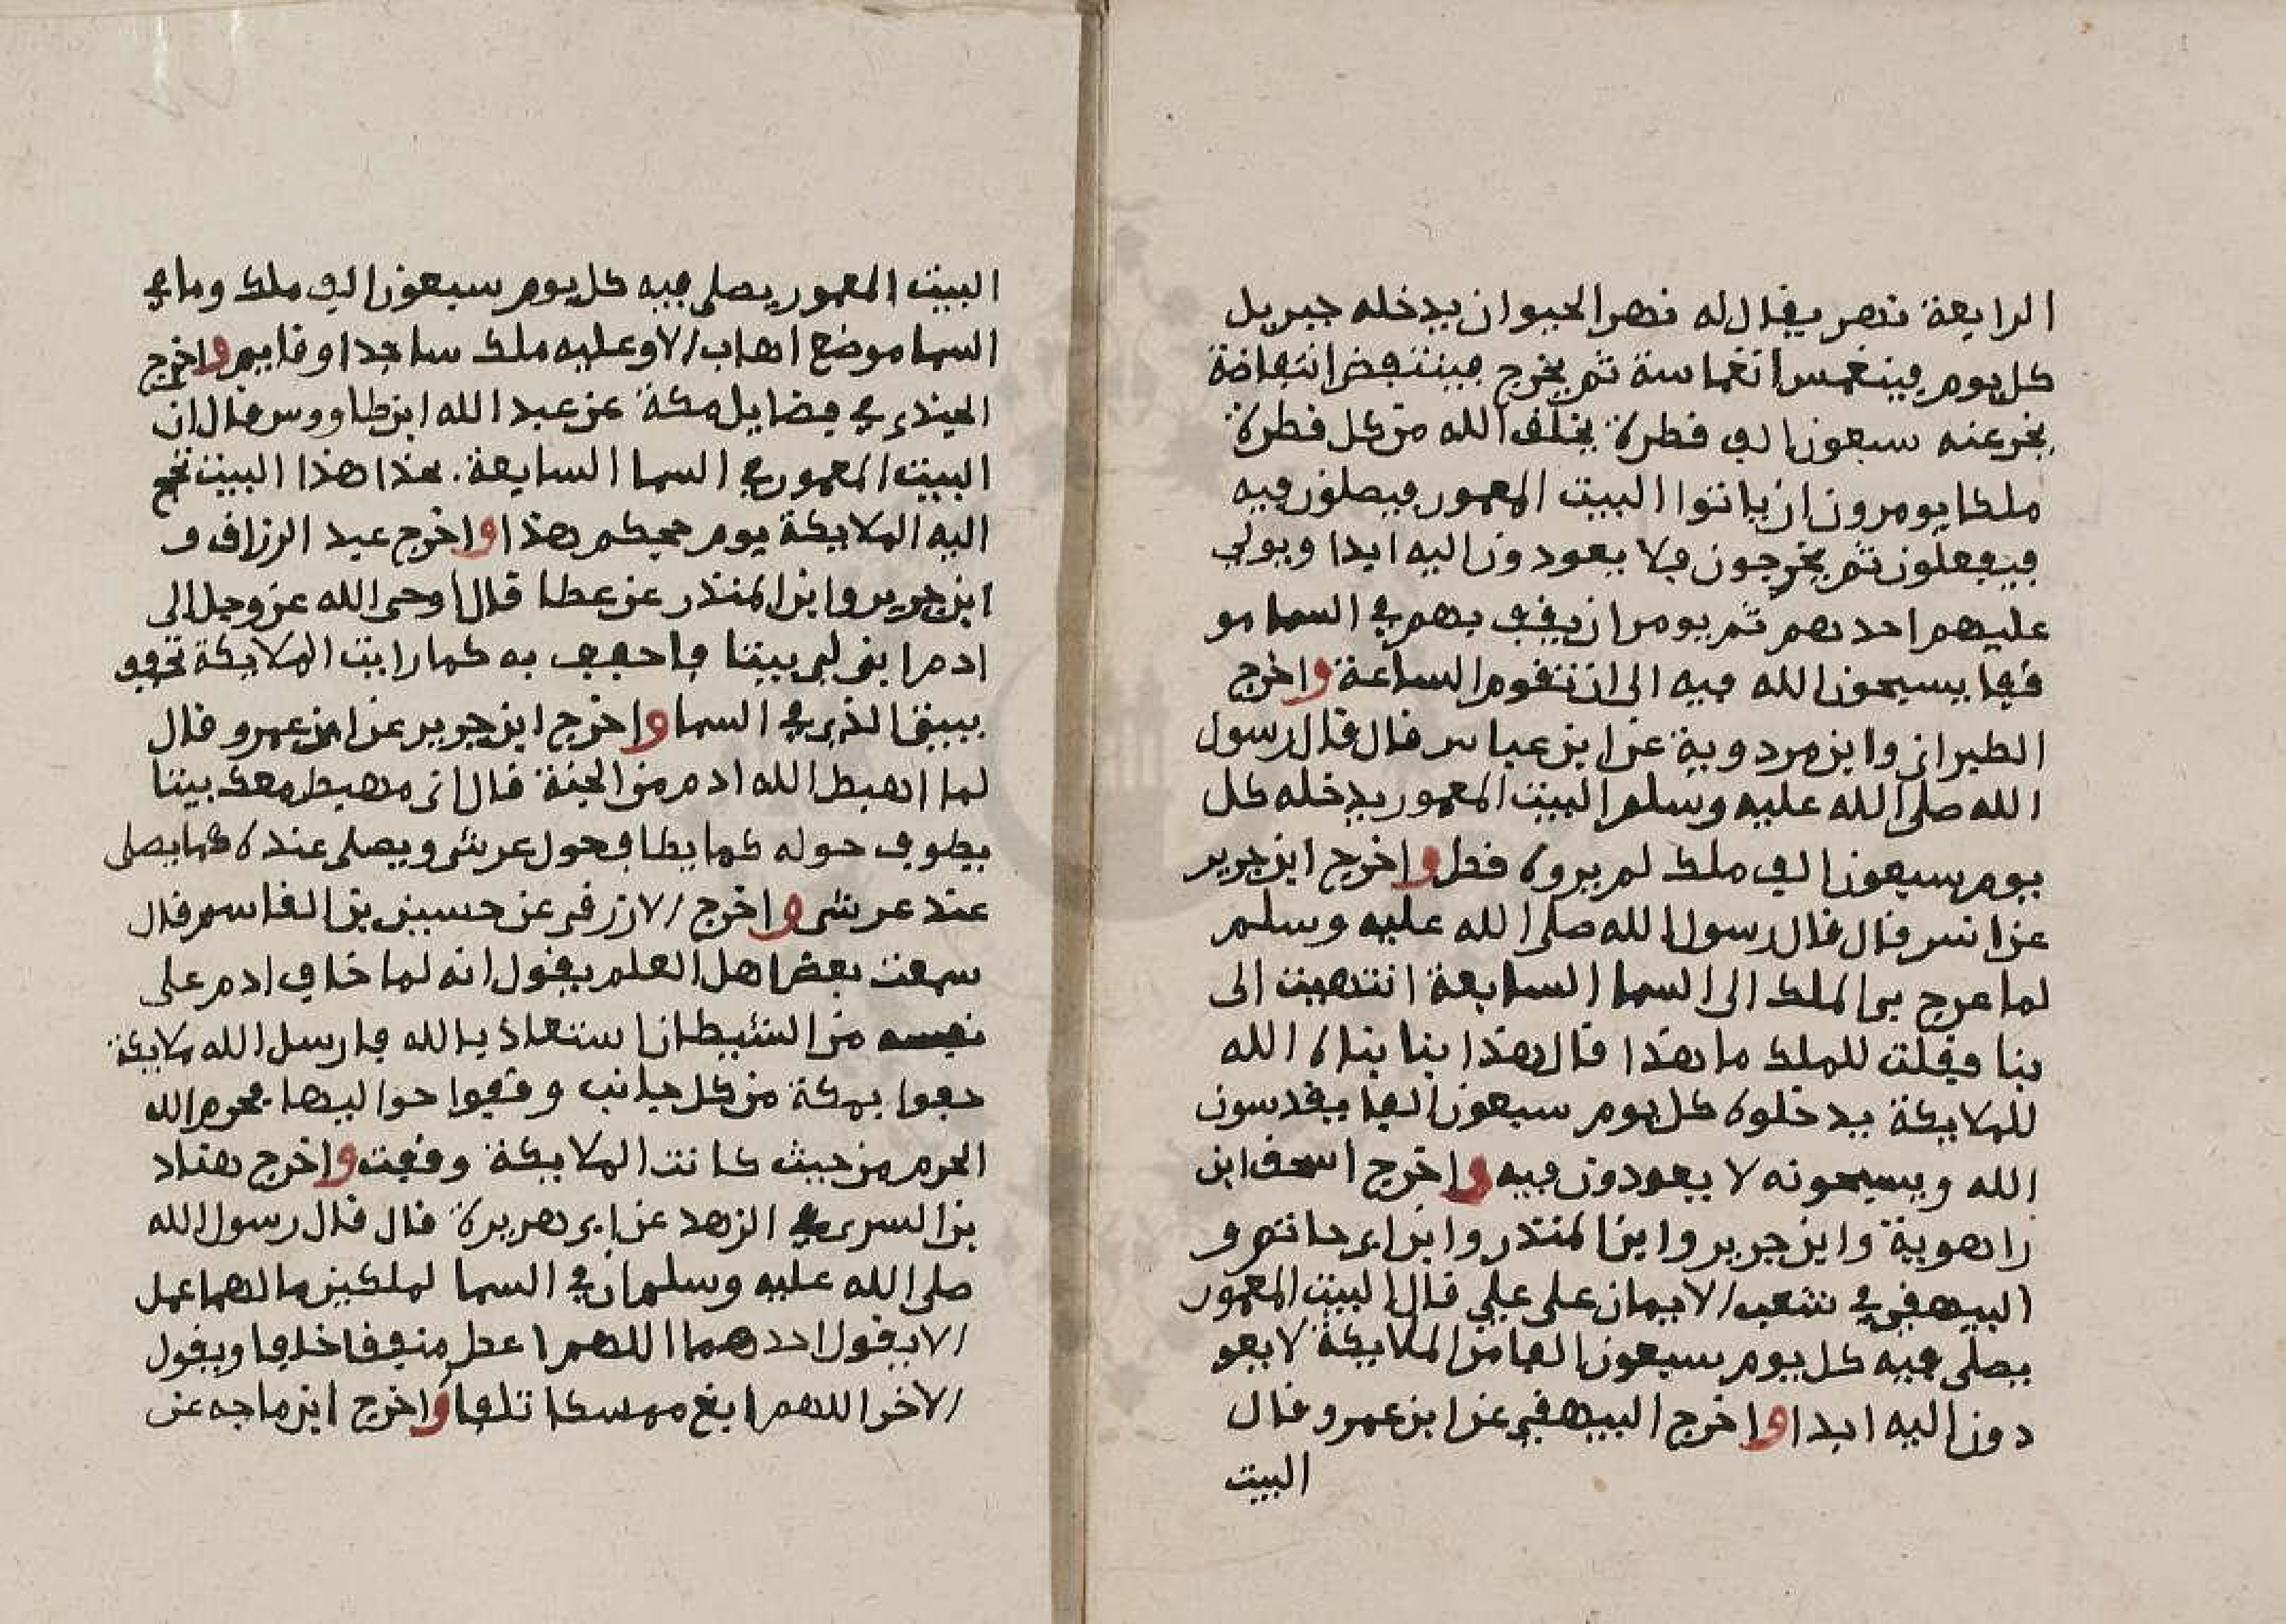 الرابعة نهر يقال له نهر الحيوان يدخله جبريل
كل يوم فينغمس انغماسة ثم يخرج فينتفض انتفاضة
يخر عنه سبعون الف قطرة يخلق الله من كل قطرة
ملكا يومرون ان ياتوا البيت المعمور فيصلون فيه
فيفعلون ثم يخرجون فلا يعودون اليه ابدا ويولي
عليهم احدهم ثم يومر ان يقف بهم في السما مو
قفا يسبحون الله فيه الى ان تقوم الساعة واخرج
الطبراني وابن مردوية عن ابن عباس قال قال رسول
الله صلى الله عليه وسلم البيت المعمور يدخله كل
يوم سبعون الف ملك لم يروه قط واخرج ابن جرير
عن انس قال قال رسول الله صلى الله عليه وسلم
لما عرج بي الملك الى السما السابعة انتهيت الى
بنا فقلت للملك ما هذا قال هذا بنا بناه الله
للملايكة يدخلوه كل يوم سبعون الفا يقدسون
الله ويسبحونه لا يعودون فيه واخرج اسحق ابن
راهوية وابن جرير وابن المنذر وابن ابي حاتم و
البيهقي في شعب الايمان على علي قال البيت المعمور
يصلى فيه كل يوم سبعون الفا من الملايكة لا يعو
دون اليه ابدا واخرج البيهقي عن ابن عمرو قال
البيت
البيت المعمور يصلى فيه كل يوم سبعون الف ملك وما في
السما موضع اهاب الا وعليه ملك ساجدا وقايم واخرج
الجندي في فضايل مكة عن عبد الله ابن طاووس قال ان
البيت المعمور في السما السابعة بحذا هذا البيت تحج
اليه الملايكة يوم حجكم هذا واخرج عبد الرزاق و
ابن جرير وابن المنذر عن عطا قال اوحى الله عز وجل الى
ادم ابن لي بيتا فاحفف به كما رايت الملايكة تحفو
ببيتي الذي في السما واخرج ابن جرير عن ابن عمرو قال
لما اهبط الله ادم من الجنة قال اني مهبط معك بيتا
يطوف حوله كما يطاف حول عرشي ويصلى عنده كما يصلى
عند عرشي واخرج الازرقي عن حسين بن القاسم قال
سمعت بعض اهل العلم يقول انه لما خاف ادم على
نفسه من الشيطان استعاذ بالله فارسل الله ملايكة
حفوا بمكة من كل جانب وقفوا حواليها فحرم الله
الحرم من حيث كانت الملايكة وقفت واخرج هناد
بن السري في الزهد عن ابي هريرة قال قال رسول الله
صلى الله عليه وسلم ان في السما لملكين ما لهما عمل
الا يقول احدهما اللهم اعط منفقا خلفا ويقول
الاخر اللهم ابغ ممسكا تلفا واخرج ابن ماجه عن